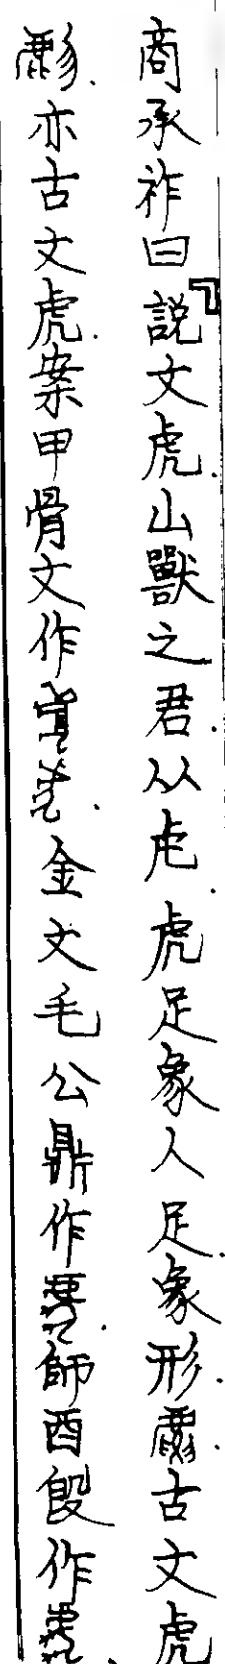 商承祚曰「説文虎山獸之君从虍虎足象人足象形古文虎
亦古文虎案甲骨文作金文毛公鼎作師酉𣪘作